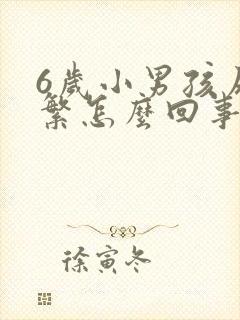 6歲小男孩
繁怎麼回事
徐寅冬